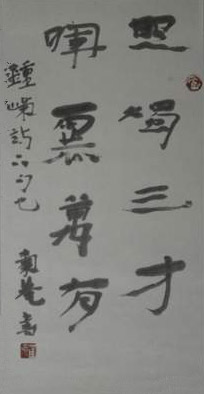 照燭三才
暉麗萬有
鍾嶸詩品句也 南菴書